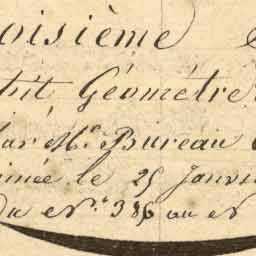 oisième
tit, Géomètre
par Mr. Bureau
inée le 25 Janvi
Du No. 386 au No